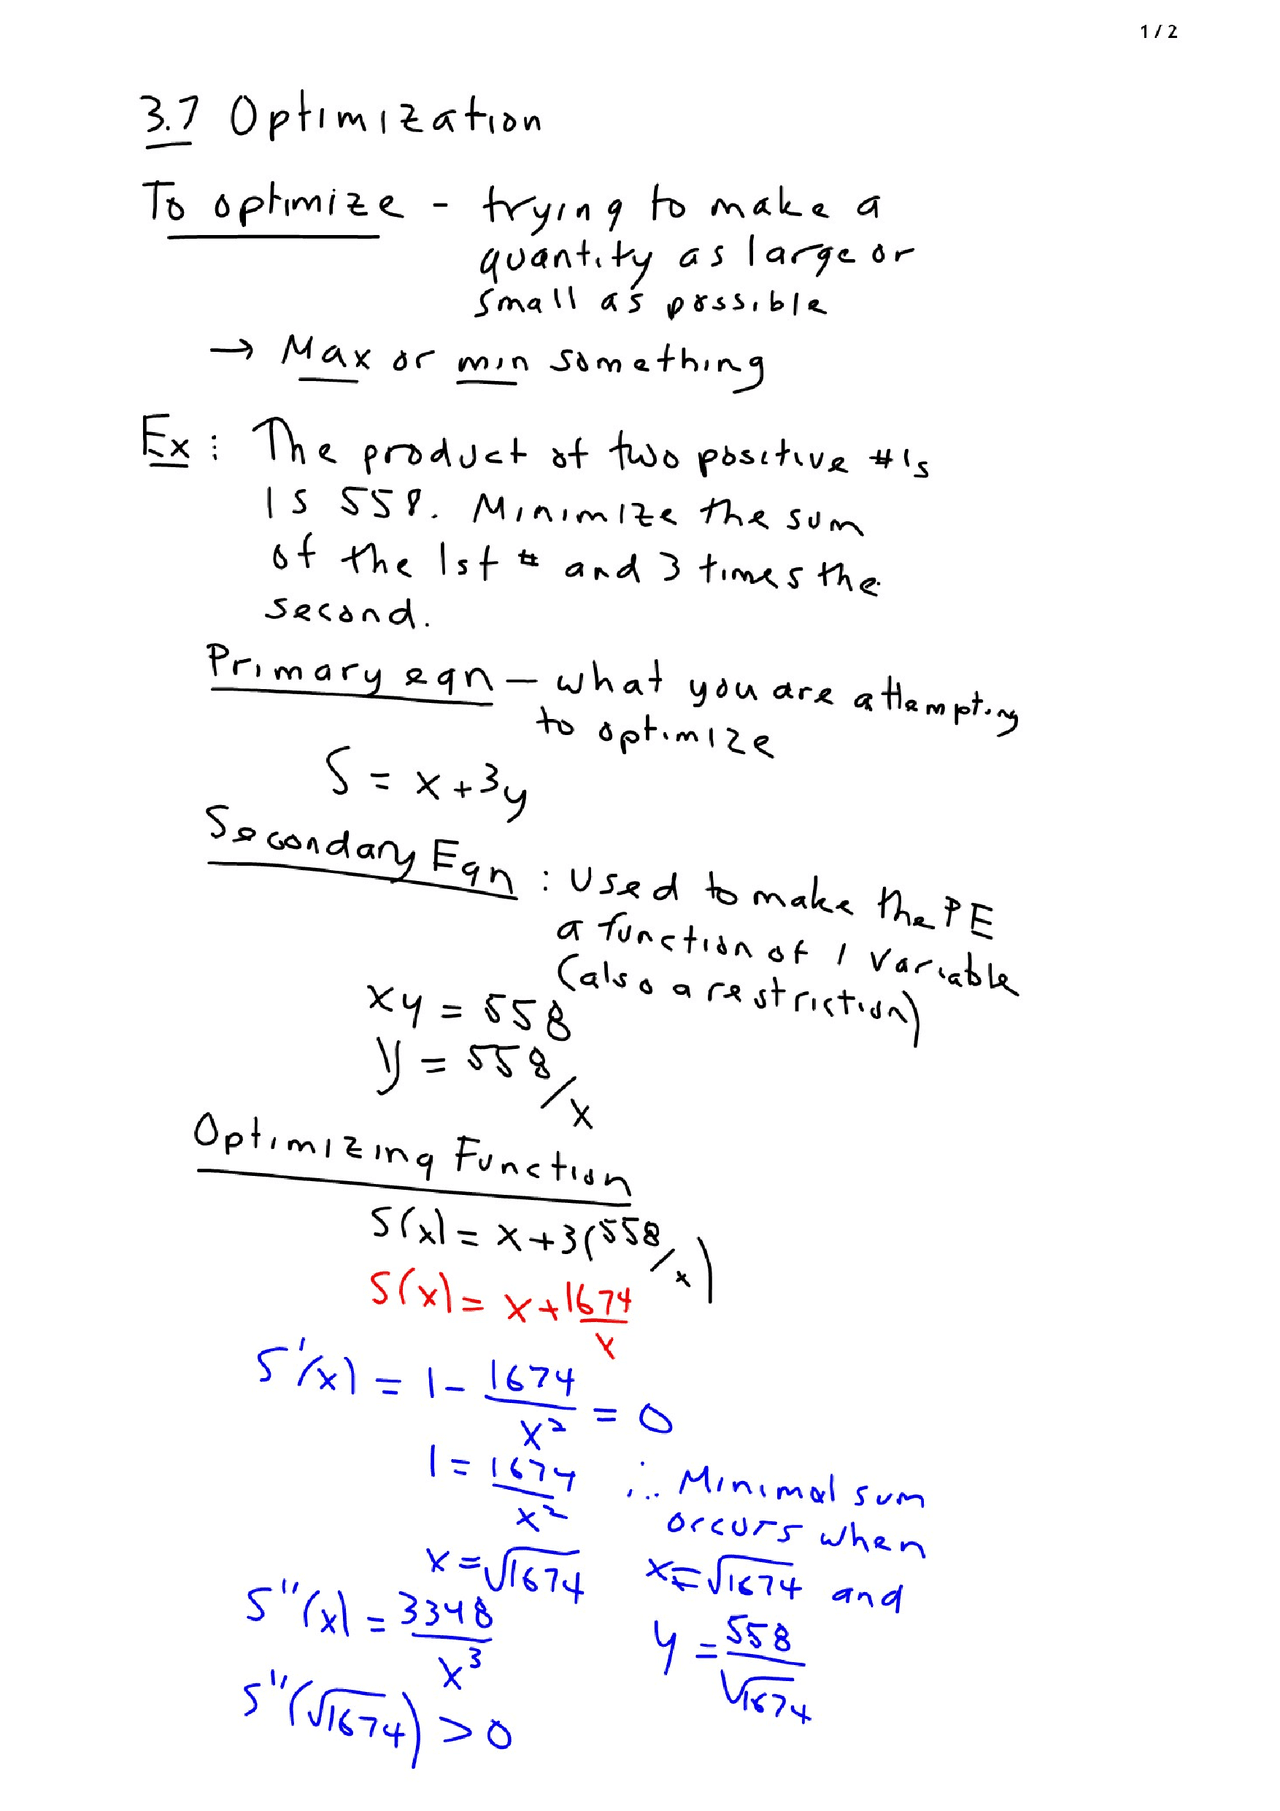 1 / 2
3.7 Optimization
To optimize - trying to make a
quantity as large or
small as possible
→ Max or min something
Ex: The product of two positive #'s
is 558. Minimize the sum
of the 1st # and 3 times the
second.
Primary eqn — what you are attempting
to optimize
S = x + 3y
Secondary Eqn : Used to make the PE
a function of 1 variable
(also a restriction)
xy = 558
y = 558/x
Optimizing Function
S(x) = x + 3(558/x)
S(x) = x + 1674/x
S'(x) = 1 - 1674/x² = 0
1 = 1674/x² ∴ Minimal sum
occurs when
x = √1674 x = √1674 and
S''(x) = 3348/x³ y = 558/√1674
S''(√1674) > 0